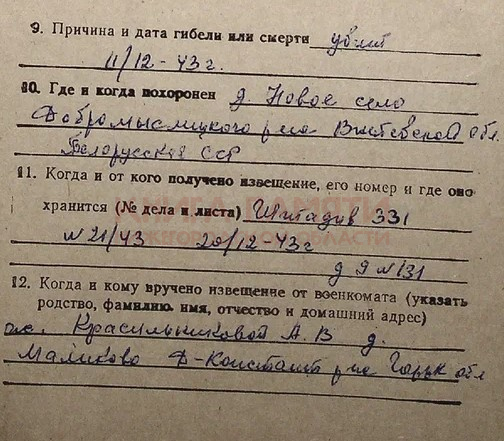 9. Причина и дата гибели или смерти убит
11/12-43 г.
10. Где и когда похоронен д. Новое село
Добромыслицкого р-на Витебской обл.
Белорусской ССР
11. Когда и от кого получено извещение, его номер и где оно
хранится (№ дела и листа) Штадив 331
N 21/43 20/12-43 г
д 9 N 131
12. Когда и кому вручено извещение от военкомата (указать
родство, фамилию, имя, отчество и домашний адрес)
ж. Красильниковой А. В д.
Маликово Д-Констант р-на Горьк обл
КНИГА ПАМЯТИ
НИЖЕГОРОДСКОЙ ОБЛАСТИ